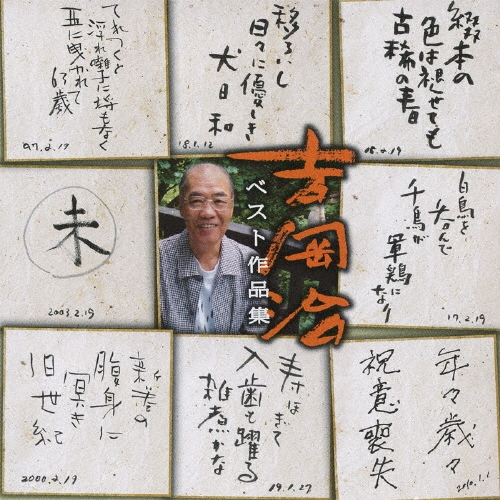 綴本の
色は褪せても
古稀の春
15.2.19
移ろいし
日々に優しき
犬日和
18.1.12
てれつくと
浮れ囃子に
五に曳かれて
63歳
97.2.19
吉岡治
ベスト作品集
白鳥を
呑んで
千鳥が
軍鶏になり
17.2.19
未
2003.2.19
年々歳々
祝意喪失
2010.1.1
寿ほぎて
入歯も躍る
雑煮かな
19.1.27
新巻の
腹身に
冥き
旧世紀
2000.2.19